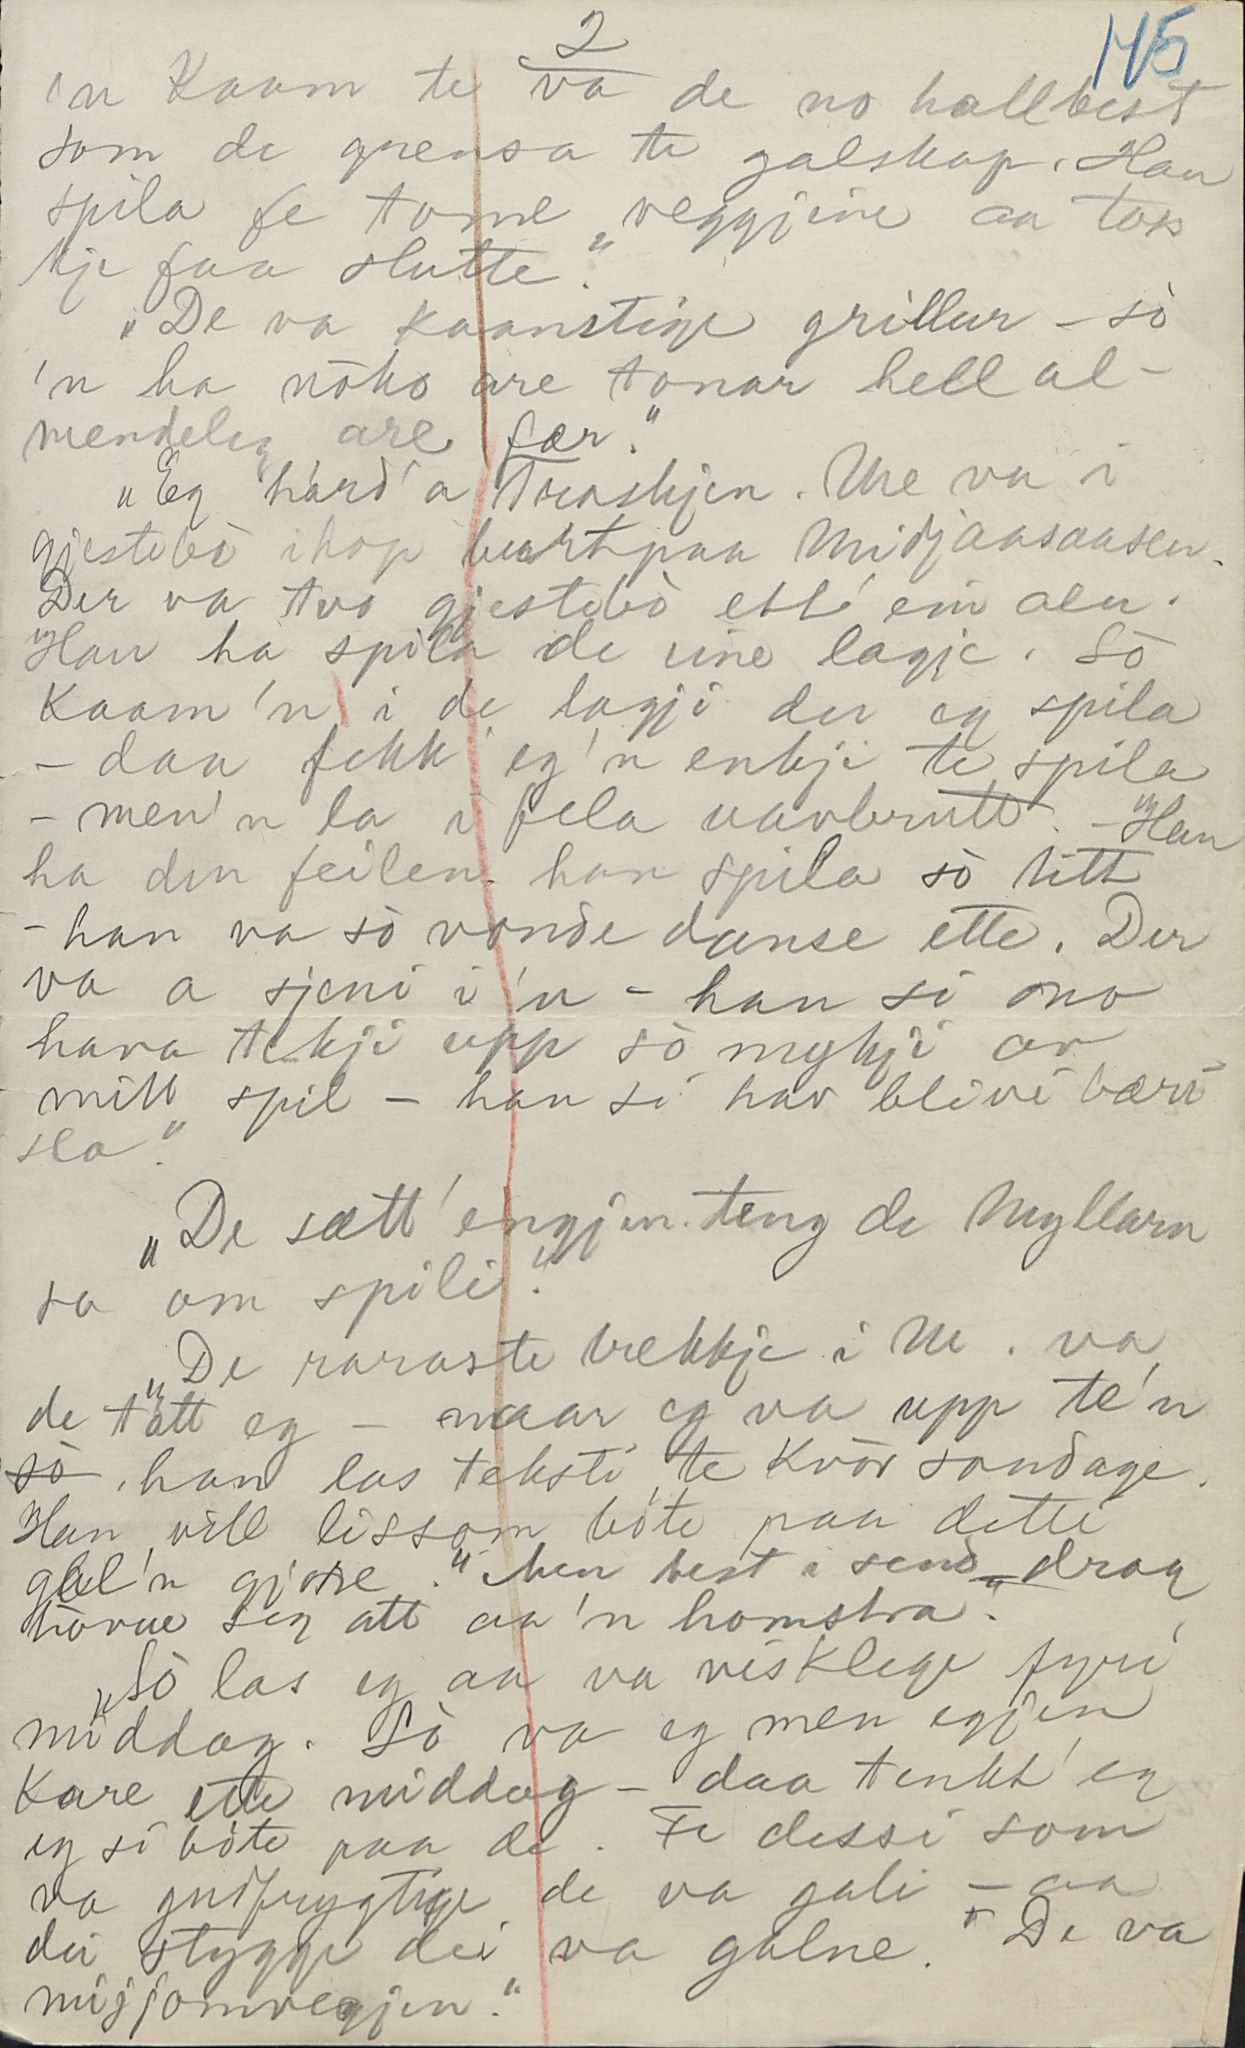 2
145
'n Kaam te va de no hallbest
som de grensa te galskap. Han
spila fe tome veggjine aa tos
kje faa slutte."
"De va kaanstige grillur – sò
'n ha nōko are tonar hell al-
mendeleg are fær."
"Eg hård'a Troskjen. Me va i
gjestebò ihop burtpaa Midjaasaasen.
Der va tvo gjestebò ett' ein aen.
Han ha spila de eine lagje. Sò
Kaam'n i de lagji der eg spila
– daa fekk eg'n enkji te spila
– men'n la i fela uavbrutt. – Han
ha den feilen han spila sò litt
– han va sò vonde danse ette. Der
va a sjeni i'n – han si mo
hava tekji upp sò mykji av
mitt spil – han si hav blivi bæri
sla."
"De sætt' engjen teng de Myllarn
sa om spili."
"De raraste brekkje i M. va
de tòtt eg – naar eg va upp te'n
sò han las teksti te kvòr sondage.
Han vill lissom bòte paa dette
gæl'n gjore." "men best i send drog
horve seg att aa'n homstra."
"Sò las eg aa va visklege fyri
middag. Sò va eg men egjen
Kare ette middag – daa tenkt' eg
eg si bòte paa de. Fe dessi som
va gudfrygtige de va gali – aa
dei stygge dei va galne. De va
misjomvegjen."